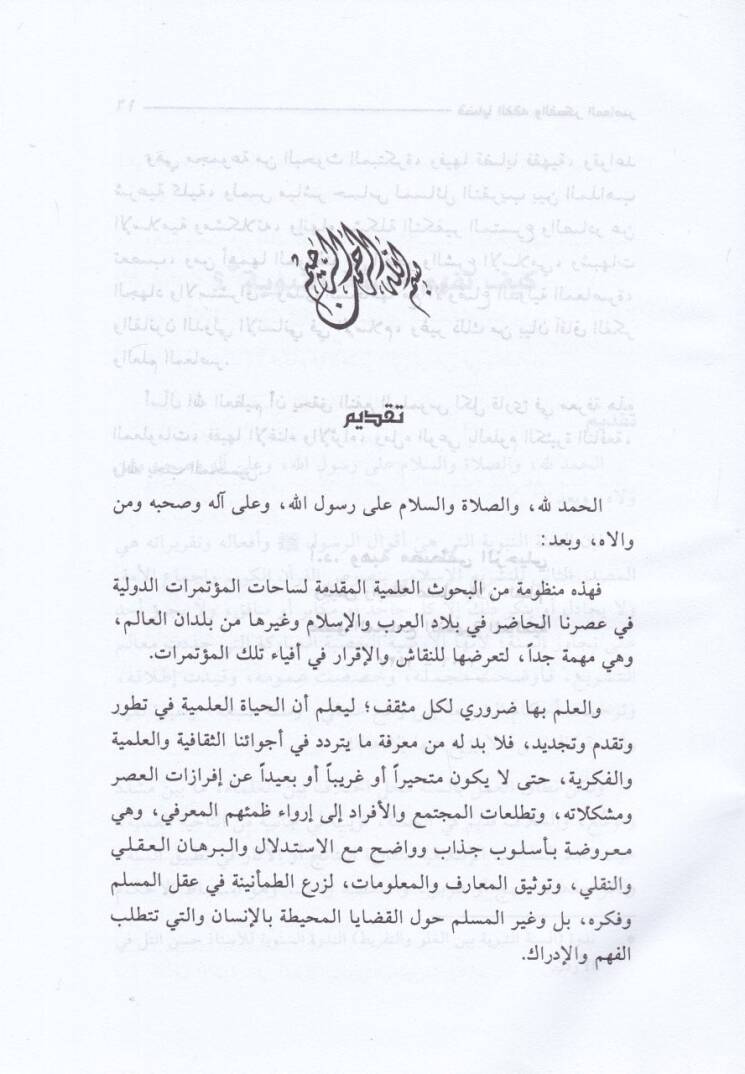 بسم الله الرحمن الرحيم
تقديم
الحمد لله، والصلاة والسلام على رسول الله، وعلى آله وصحبه ومن
والاه، وبعد:
فهذه منظومة من البحوث العلمية المقدمة لساحات المؤتمرات الدولية
في عصرنا الحاضر في بلاد العرب والإسلام وغيرها من بلدان العالم،
وهي مهمة جداً، لتعرضها للنقاش والإقرار في أفياء تلك المؤتمرات.
والعلم بها ضروري لكل مثقف؛ ليعلم أن الحياة العلمية في تطور
وتقدم وتجديد، فلا بد له من معرفة ما يتردد في أجوائنا الثقافية والعلمية
والفكرية، حتى لا يكون متحيراً أو غريباً أو بعيداً عن إفرازات العصر
ومشكلاته، وتطلعات المجتمع والأفراد إلى إرواء ظمئهم المعرفي، وهي
معروضة بأسلوب جذاب وواضح مع الاستدلال والبرهان العقلي
والنقلي، وتوثيق المعارف والمعلومات، لزرع الطمأنينة في عقل المسلم
وفكره، بل وغير المسلم حول القضايا المحيطة بالإنسان والتي تتطلب
الفهم والإدراك.